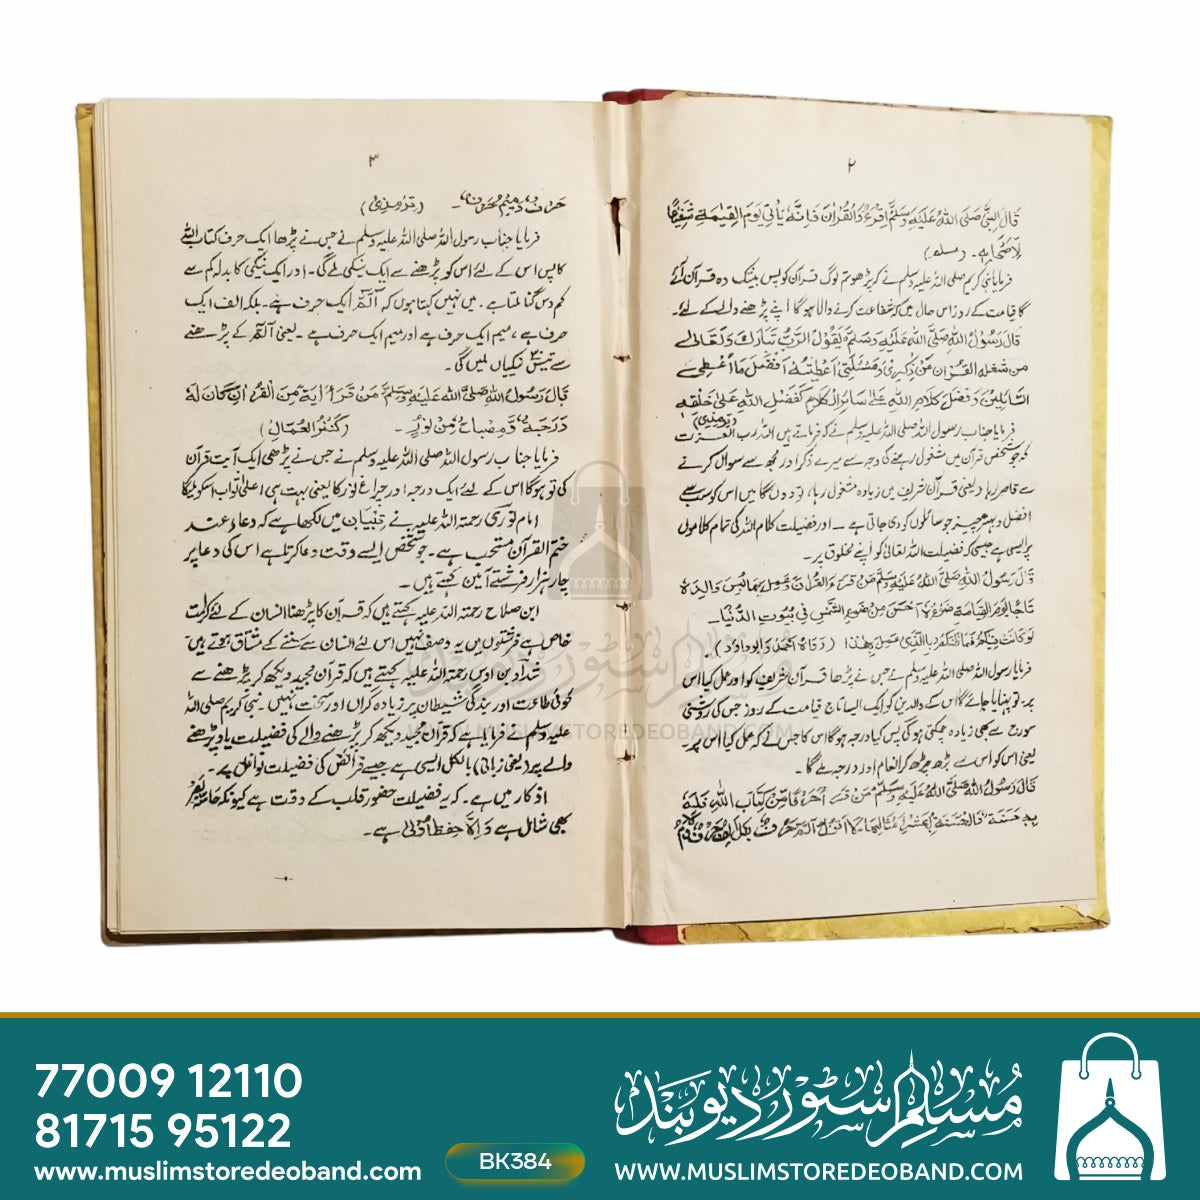 ٢
قَالَ النَّبِیُّ صَلَّی اللّٰہُ عَلَیْہِ وَسَلَّمَ اِقْرَءُ وا الْقُرْاٰنَ فَاِنَّہٗ یَاْتِیْ یَوْمَ الْقِیٰمَۃِ شَفِیْعًا
لِاَصْحَابِہٖ ۔ (مسلم)
فرمایا نبی کریم صلی اللہ علیہ وسلم نے کہ پڑھو تم لوگ قرآن کو پس بیشک وہ قرآن آئے
گا قیامت کے روز اس حال میں کہ شفاعت کرنے والا ہوگا اپنے پڑھنے والے کے لئے۔
قَالَ رَسُوْلُ اللّٰہِ صَلَّی اللّٰہُ عَلَیْہِ وَسَلَّمَ یَقُوْلُ الرَّبُّ تَبَارَکَ وَتَعَالٰی
من شغلہ القُرْاٰن عَنْ ذِکْرِیْ وَمَسْئَلَتِیْ اَعْطَیْتُہٗ اَفْضَلَ مَا اُعْطِیْ
السَّائِلِیْنَ وَفَضْلُ کَلَامِ اللّٰہِ عَلٰی سَائِرِ الْکَلَامِ کَفَضْلِ اللّٰہِ عَلٰی خَلْقِہٖ
(ترمذی)
فرمایا جناب رسول اللہ صلی اللہ علیہ وسلم نے کہ فرماتے ہیں اللہ رب العزت
کہ جو شخص قرآن میں مشغول رہنے کی وجہ سے میرے ذکر اور مجھ سے سوال کرنے
سے قاصر رہا، یعنی قرآن شریف میں زیادہ مشغول رہا، تو دوں گا میں اس کو سب سے
افضل وبہتر چیز جو سائلوں کو دی جاتی ہے ۔ اور فضیلت کلام اللہ کی تمام کلاموں
پر ایسی ہے جیسی کہ فضیلت اللہ تعالیٰ کو اپنے مخلوق پر۔
قَالَ رَسُوْلُ اللّٰہِ صَلَّی اللّٰہُ عَلَیْہِ وَسَلَّمَ مَنْ قَرَءَ الْقُرْاٰنَ وَعَمِلَ بِمَا اُلْبِسَ وَالِدَاہُ
تَاجًا یَوْمَ الْقِیَامَۃِ ضَوْءُہٗ اَحْسَنُ مِنْ ضَوْءِ الشَّمْسِ فِیْ بُیُوْتِ الدُّنْیَا۔
لَوْ کَانَتْ فِیْکُمْ فَمَا ظَنُّکُمْ بِالَّذِیْ عَمِلَ بِھٰذَا (رَوَاہُ اَحْمَدُ وَابُوْدَاؤد)۔
فرمایا رسول اللہ صلی اللہ علیہ وسلم نے جس نے پڑھا قرآن شریف کو اور عمل کیا اس
پر۔ تو پہنایا جائے گا اس کے والدین کو ایک ایسا تاج قیامت کے روز جس کی روشنی
سورج سے بھی زیادہ چمکتی ہوگی پس کیا درجہ ہوگا اس کا جس نے کہ عمل کیا اس پر۔
یعنی اس کو اس سے بڑھ چڑھ کر انعام اور درجہ ملے گا۔
قَالَ رَسُوْلُ اللّٰہِ صَلَّی اللّٰہُ عَلَیْہِ وَسَلَّمَ مَنْ قَرَءَ حَرْفًا مِّنْ کِتَابِ اللّٰہِ فَلَہٗ
بِہٖ حَسَنَۃٌ وَالْحَسَنَۃُ بِعَشْرِ اَمْثَالِہَا لَا اَقُوْلُ الٓمّٓ حَرْفٌ بَلْ اَلِفٌ حَرْفٌ وَلَامٌ
٣
حَرْفٌ وَمِیْمٌ حَرْفٌ ۔ (ترمذی)
فرمایا جناب رسول اللہ صلی اللہ علیہ وسلم نے جس نے پڑھا ایک حرف کتاب اللہ
کا پس اس کے لئے اس کو پڑھنے سے ایک نیکی ملے گی۔ اور ایک نیکی کا بدلہ کم سے
کم دس گنا ملتا ہے۔ میں نہیں کہتا ہوں کہ الٓمّٓ ایک حرف ہے۔ بلکہ الف ایک
حرف ہے، میم ایک حرف ہے اور میم ایک حرف ہے ۔ یعنی الٓمّٓ کے پڑھنے
سے تیس نیکیاں ملیں گی۔
قَالَ رَسُوْلُ اللّٰہِ صَلَّی اللّٰہُ عَلَیْہِ وَسَلَّمَ مَنْ قَرَءَ اٰیَۃً مِّنَ الْقُرْاٰنِ کَانَ لَہٗ
دَرَجَۃٌ وَّمِصْبَاحٌ مِّنْ نُوْرٍ ۔ (کَنْزُ الْعُمَّالِ)
فرمایا جناب رسول اللہ صلی اللہ علیہ وسلم نے جس نے پڑھی ایک آیت قرآن
کی تو ہوگا اس کے لئے ایک درجہ اور چراغ نور کا یعنی بہت ہی اعلیٰ ثواب اسکو ملیگا
امام نوری رحمۃ اللہ علیہ نے تبیان میں لکھا ہے کہ دعاء عند
ختم القرآن مستحب ہے۔ جو شخص ایسے وقت دعا کرتا ہے اس کی دعا پر
چار ہزار فرشتے آمین کہتے ہیں۔
ابن صلاح رحمۃ اللہ علیہ کہتے ہیں کہ قرآن کا پڑھنا انسان کے لئے کرامت
خاص ہے فرشتوں میں یہ وصف نہیں اس لئے انسان سے سننے کے مشتاق ہوتے ہیں
شداد بن اوس رحمۃ اللہ علیہ کہتے ہیں کہ قرآن مجید دیکھ کر پڑھنے سے
کوئی طاعت اور بندگی شیطان پر زیادہ گراں اور سخت نہیں۔ نبی کریم صلی اللہ
علیہ وسلم نے فرمایا ہے کہ قرآن مجید دیکھ کر پڑھنے والے کی فضیلت یاد پڑھنے
والے پر (یعنی زبانی) بالکل ایسی ہے جیسے فرائض کی فضیلت نوافل پر۔
اذکار میں ہے۔ کہ یہ فضیلت حضور قلب کے وقت ہے کیونکہ حاسّہ بصر
بھی شامل ہے وَاِلَّا حِفْظًا اَوْلٰی ہے۔
مسلم سٹور دیوبند
WWW.MUSLIMSTOREDEOBAND.COM
77009 12110
81715 95122
www.muslimstoredeoband.com
BK384
مُسْلِم سٹور دیوبَند
WWW.MUSLIMSTOREDEOBAND.COM